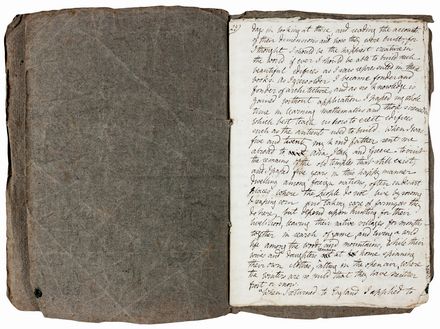 days in looking at these, and reading the account
of their dimensions and how they were built; for
I thought I should be the happiest creature in
the world if ever I should be able to build such
beautiful edifices as I saw represented in these
books. As I grew older I became fonder and
fonder of architecture, and as no knowledge is
gained without application I passed my whole
time in learning mathematics and those sciences
which best teach us how to erect edifices
such as the antients used to build. When I was
five and twenty my kind father sent me
abroad to Asia, Italy and Greece to visit
the remains of the old temples that still exist,
and I passed five years in this happy manner
dwelling among foreign nations, often in desert
places where the people do not live by
and taking care of farms as they
do here, but depend upon hunting for their
livelihood, leaving their native villages for months
together in search of game, and living a wild
life among the woods and mountains, while their
wives and daughters remain at home spinning
their own clothes, sitting in the open air, where
the winters are so mild that they have neither
frost or snow.
"When I returned to England I applied to